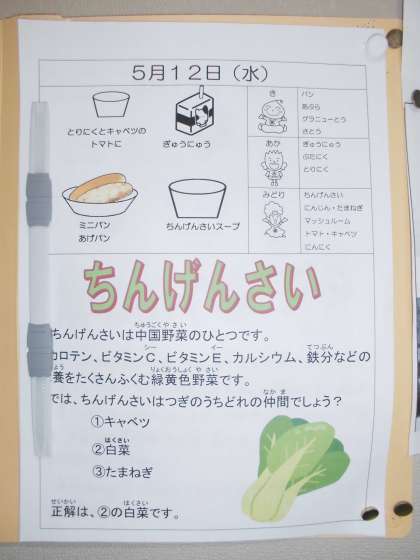 5月12日（水）
とりにくとキャベツの
トマトに
ぎゅうにゅう
ミニパン
あげパン
ちんげんさいスープ
き
パン
あぶら
グラニューとう
さとう
あか
ぎゅうにゅう
ぶたにく
とりにく
みどり
ちんげんさい
にんじん・たまねぎ
マッシュルーム
トマト・キャベツ
にんにく
ちんげんさい
ちゅうごくやさい
ちんげんさいは中国野菜のひとつです。
シー イー てつぶん
カロテン、ビタミンC、ビタミンE、カルシウム、鉄分などの
よう りょくおうしょくやさい
養をたくさんふくむ緑黄色野菜です。
なかま
では、ちんげんさいはつぎのうちどれの仲間でしょう？
①キャベツ
はくさい
②白菜
③たまねぎ
せいかい はくさい
正解は、②の白菜です。